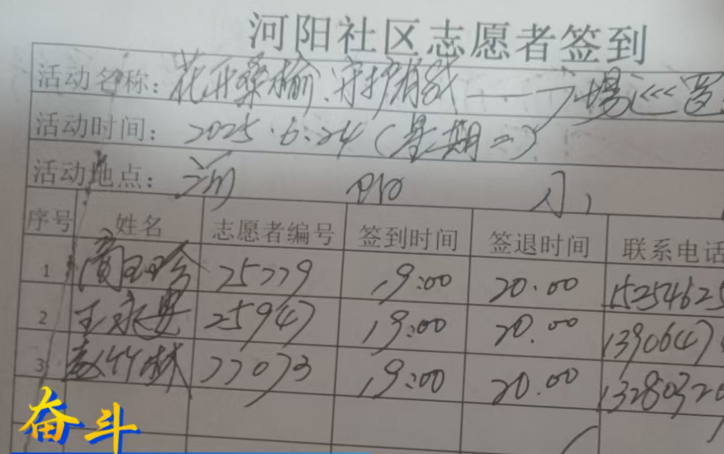 河阳社区志愿者签到
活动名称: 花开桑榆、守护有我——广场巡
活动时间: 2025.6.24(星期二)
活动地点: 河 阳
序号 姓名 志愿者编号 签到时间 签退时间 联系电话
1 25779 19:00 20.00 15254625
2 王永 25947 19:00 20.00 1390647
3 赵竹林 77073 19:00 20.00 13280320
奋斗